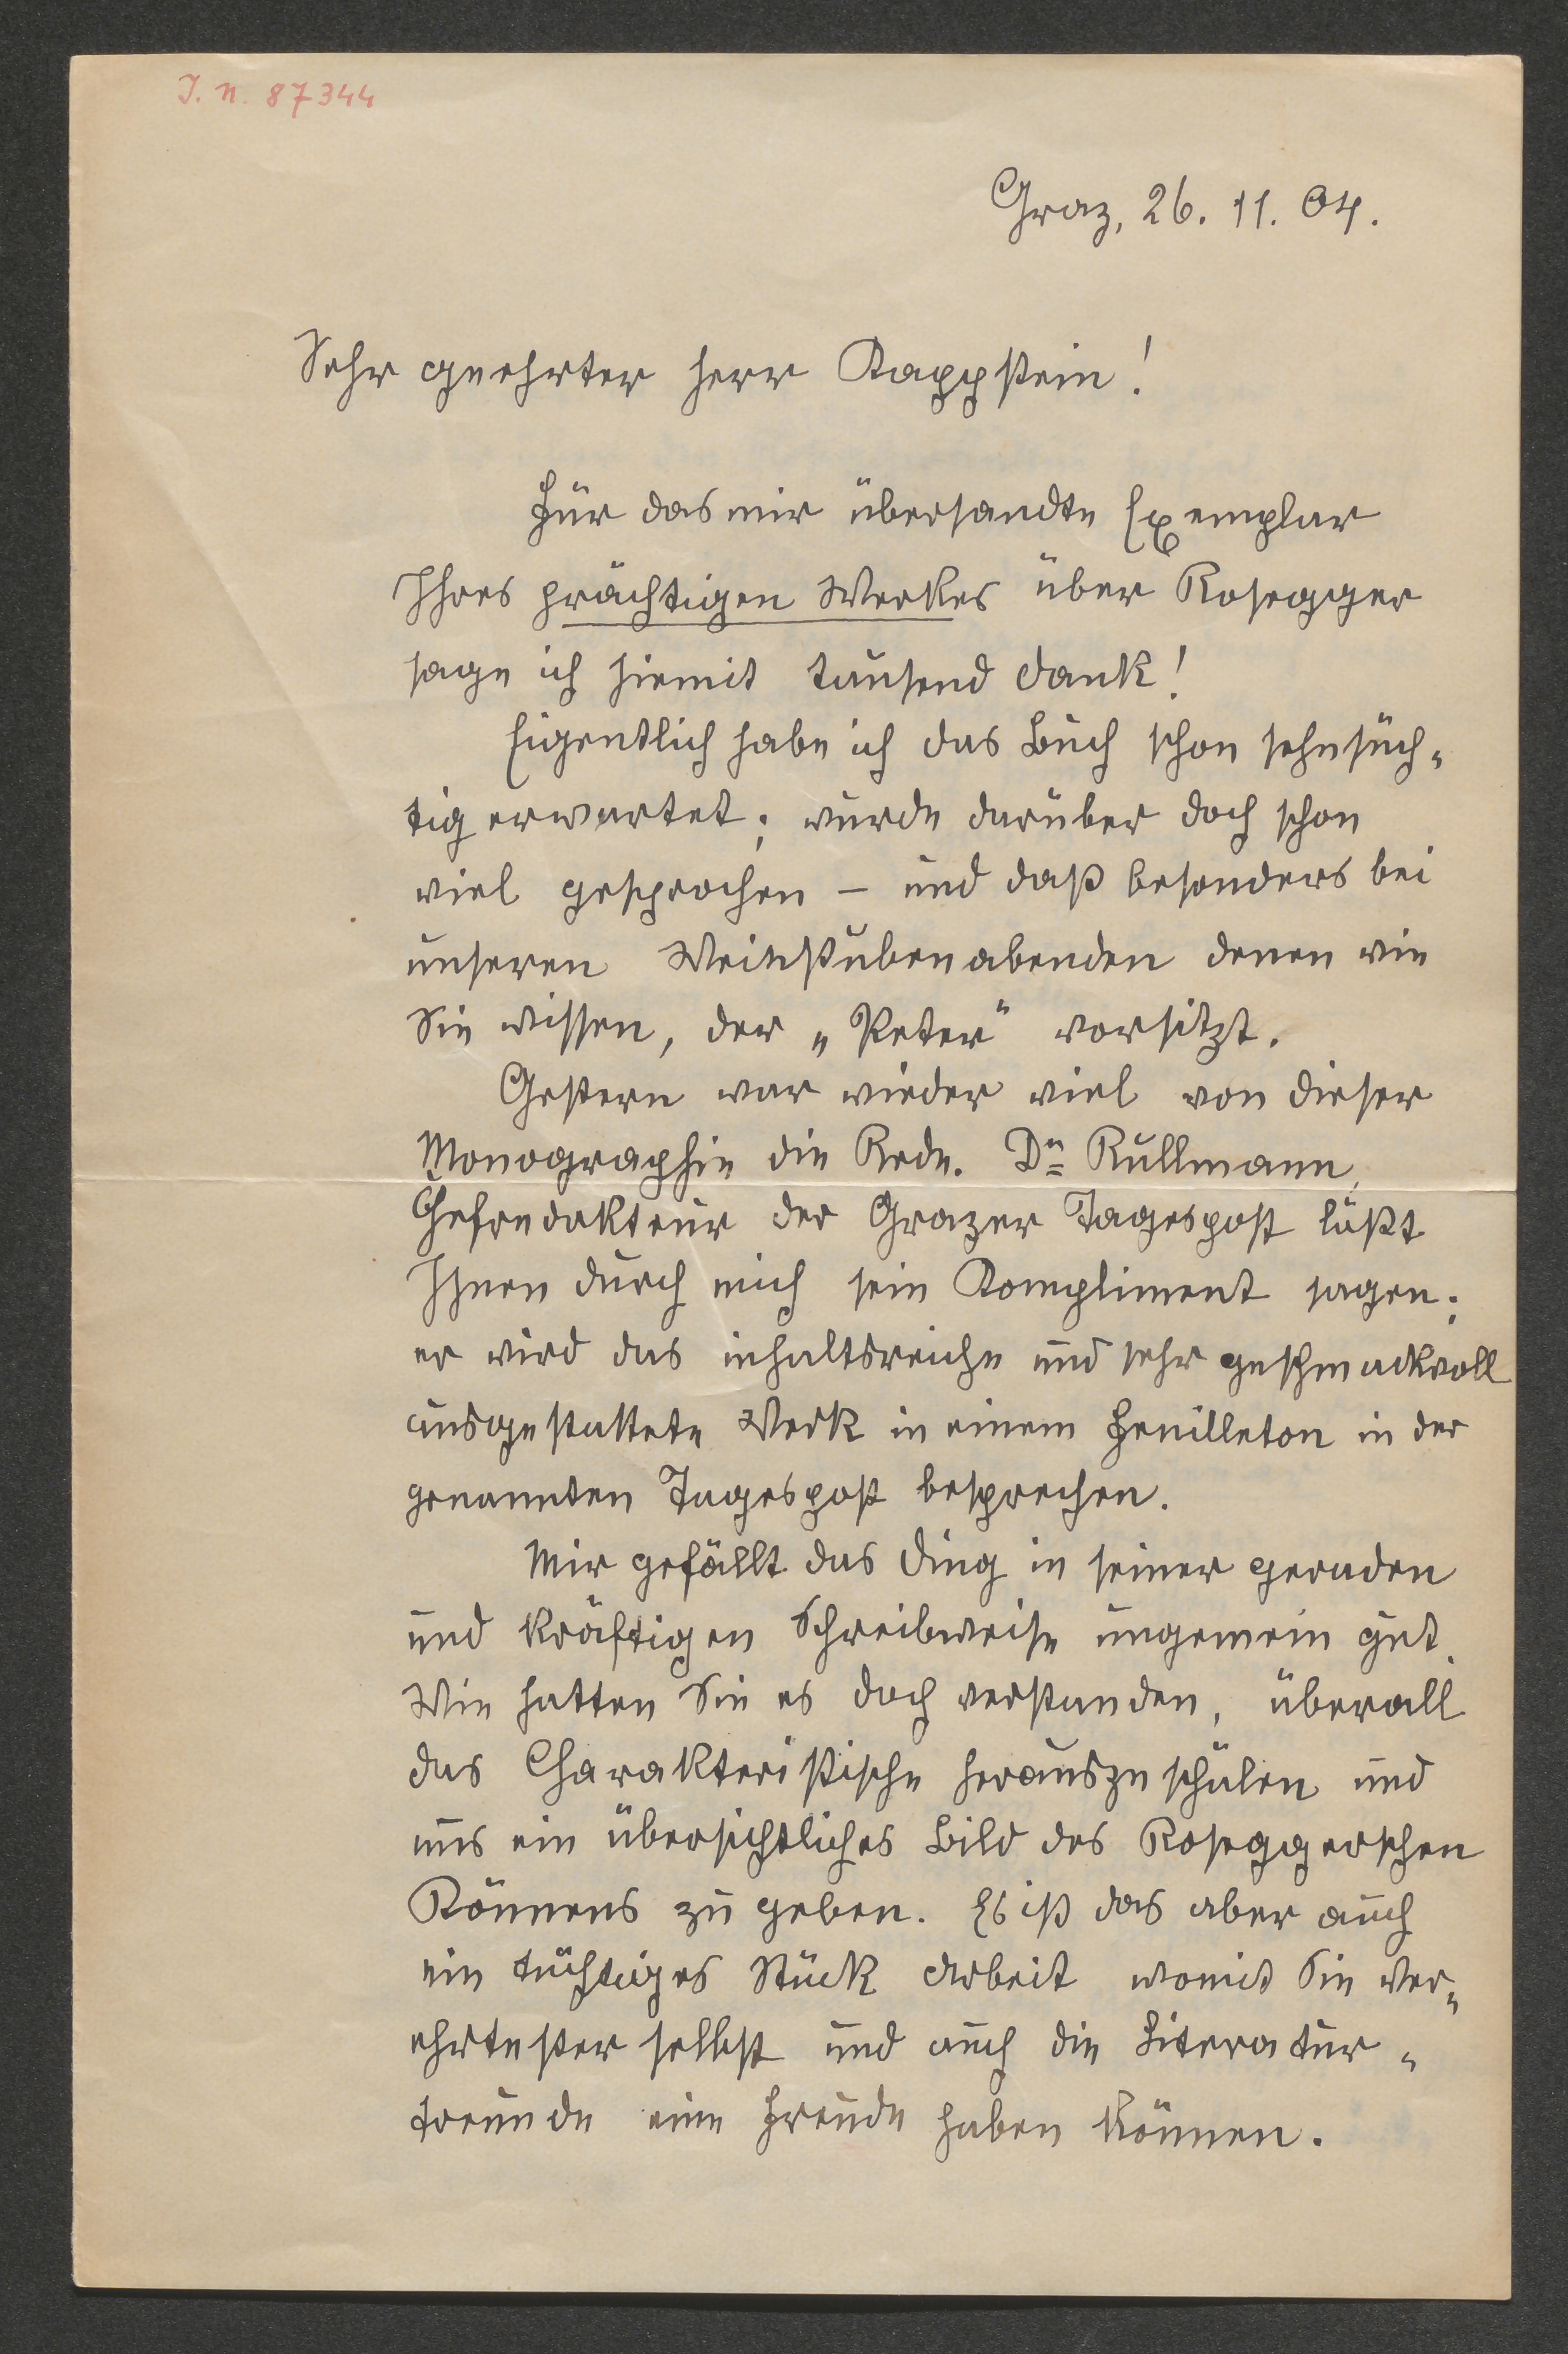 J. N. 87344
Graz, 26. 11. 04.
Sehr geehrter Herr Kappstein!
Für das mir übersandte Exemplar
Ihres prächtigen Werkes über Rosegger
sage ich hiemit tausend Dank!
Eigentlich habe ich das Buch schon sehnsüch„
tig erwartet; wurde darüber doch schon
viel gesprochen – und daß besonders bei
unseren Weinstubenabenden denen wie
Sie wissen, der „Peter“ vorsitzt.
Gestern war wieder viel von dieser
Monographie die Rede. Dr Kullmann,
Chefredakteur der Grazer Tagespost läßt
Ihnen durch mich sein Kompliment sagen;
er wird das inhaltsreiche und sehr geschmackvoll
ausgestattete Werk in einem Feuilleton in der
genannten Tagespost besprechen.
Mir gefällt das Ding in seiner geraden
und kräftigen Schreibweise ungemein gut.
Wie hatten Sie es doch verstanden, überall
das Charakteristische herauszuschälen und
uns ein übersichtliches Bild des Roseggerschen
Könnens zu geben. Es ist das aber auch
ein tüchtiges Stück Arbeit womit Sie Ver„
ehrtester selbst und auch die Literatur„
freunde eine Freude haben können.